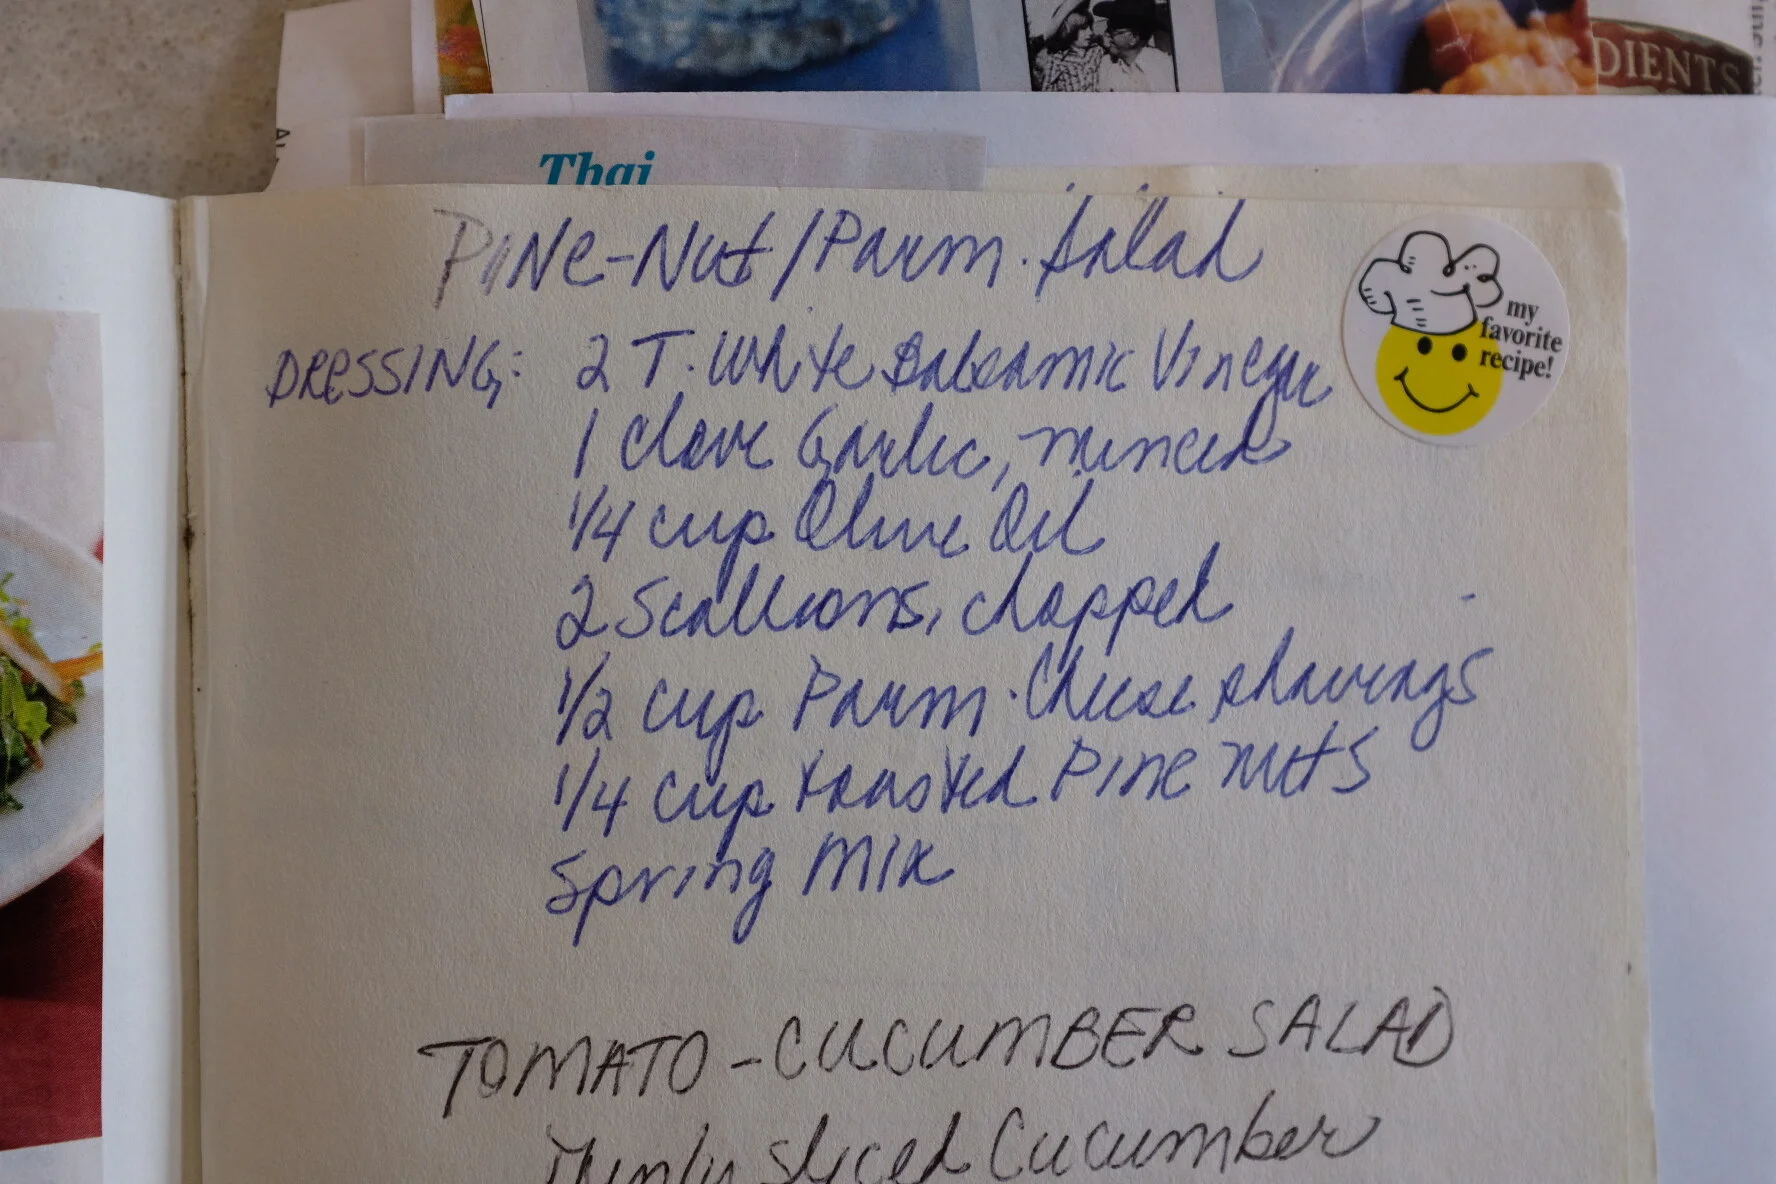 DIENTS
Thai
Pine-Nut/Parm. Salad
my
favorite
recipe!
DRESSING: 2 T. White Balsamic Vinegar
1 clove Garlic, minced
1/4 cup Olive Oil
2 Scallions, chopped
1/2 cup Parm. Cheese shavings
1/4 cup toasted Pine nuts
Spring Mix
TOMATO-CUCUMBER SALAD
Thinly sliced Cucumber